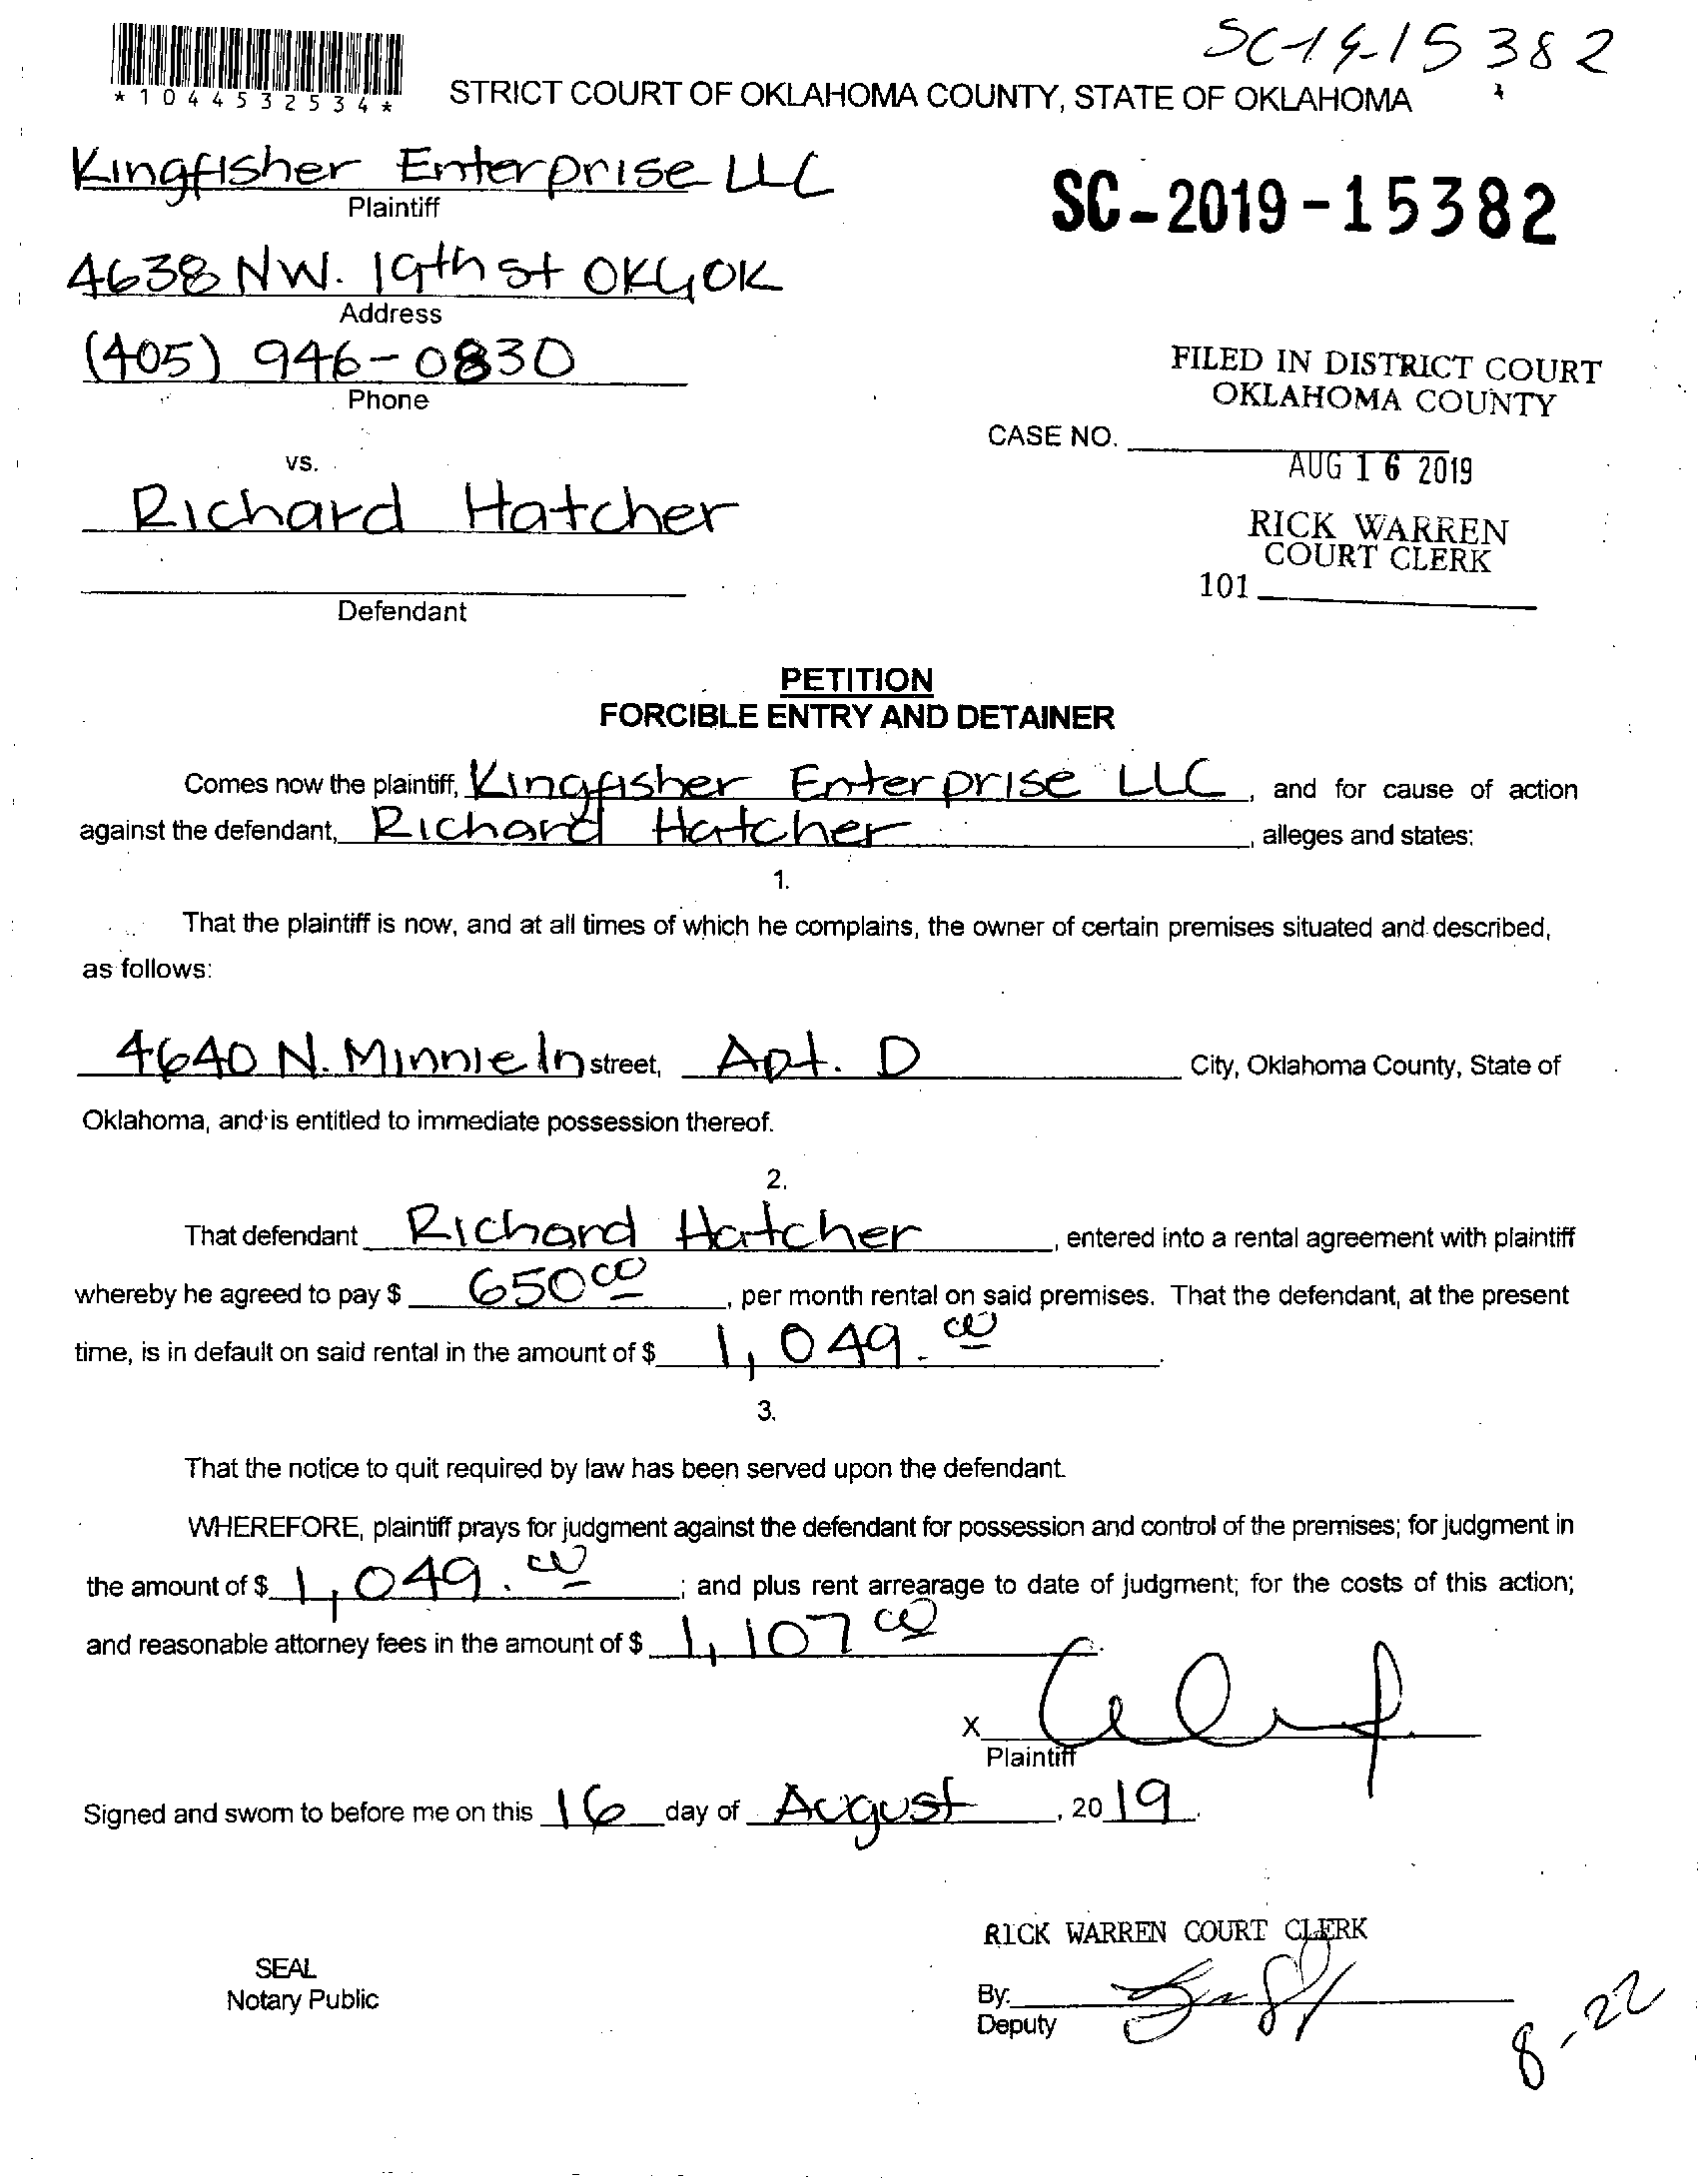 SC-19-15382
*1044532534*
STRICT COURT OF OKLAHOMA COUNTY, STATE OF OKLAHOMA
Kingfisher Enterprise LLC
Plaintiff
SC-2019-15382
4638 NW. 19th st OKC, OK
Address
(405) 946-0830
Phone
FILED IN DISTRICT COURT
OKLAHOMA COUNTY
CASE NO.
AUG 16 2019
vs.
Richard Hatcher
RICK WARREN
COURT CLERK
101
Defendant
PETITION
FORCIBLE ENTRY AND DETAINER
Comes now the plaintiff, Kingfisher Enterprise LLC, and for cause of action
against the defendant, Richard Hatcher, alleges and states:
1.
That the plaintiff is now, and at all times of which he complains, the owner of certain premises situated and described,
as follows:
4640 N. Minnie ln street, Apt. D City, Oklahoma County, State of
Oklahoma, and is entitled to immediate possession thereof.
2.
That defendant Richard Hatcher, entered into a rental agreement with plaintiff
whereby he agreed to pay $ 650 00, per month rental on said premises. That the defendant, at the present
time, is in default on said rental in the amount of $ 1,049.00.
3.
That the notice to quit required by law has been served upon the defendant.
WHEREFORE, plaintiff prays for judgment against the defendant for possession and control of the premises; for judgment in
the amount of $ 1,049.00; and plus rent arrearage to date of judgment; for the costs of this action;
and reasonable attorney fees in the amount of $ 1,107 00.
X
Plaintiff
Signed and sworn to before me on this 16 day of August, 2019.
RICK WARREN COURT CLERK
SEAL
Notary Public
By:
Deputy
8-22